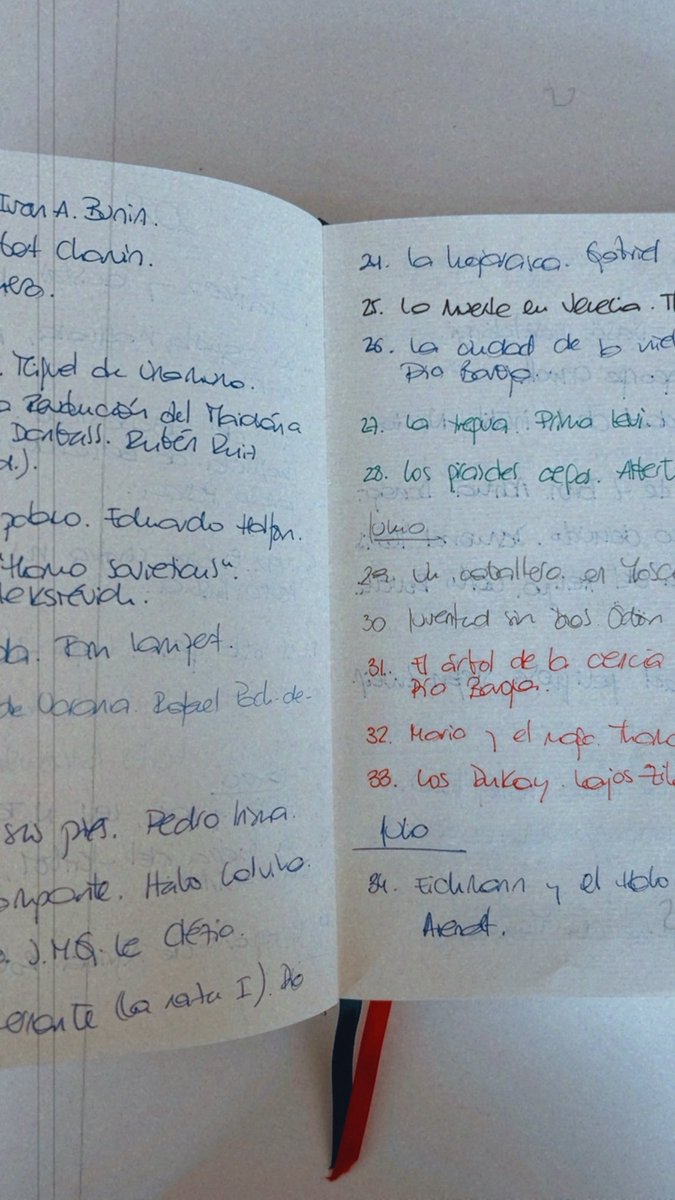 Ivan A. Bunin.
Chanin.
Miguel de Unamuno.
Revolución del Maidán a
Donbass. Rubén Ruiz
Eduardo Halfon.
"Homo sovieticus".
leksiévich.
Tom Lampert.
de Varona. Rafael
sus pies. Pedro
Italo Calvino.
J.M.G. Le Clézio.
errante (La
24. La hojarasca. Gabriel
25. La muerte en Venecia. T
26. La ciudad de la nie
Pío Baroja.
27. La tregua. Primo Levi.
28. Los grandes Albert
Junio
29. Un caballero en Mosc
30 Juventud sin Dios Ödön
31. El árbol de la ciencia
Pío Baroja.
32. Mario y el mago. Thoma
33. Los Dukay. Lajos Zila
Julio
34. Eichmann y el Holo
Arendt.